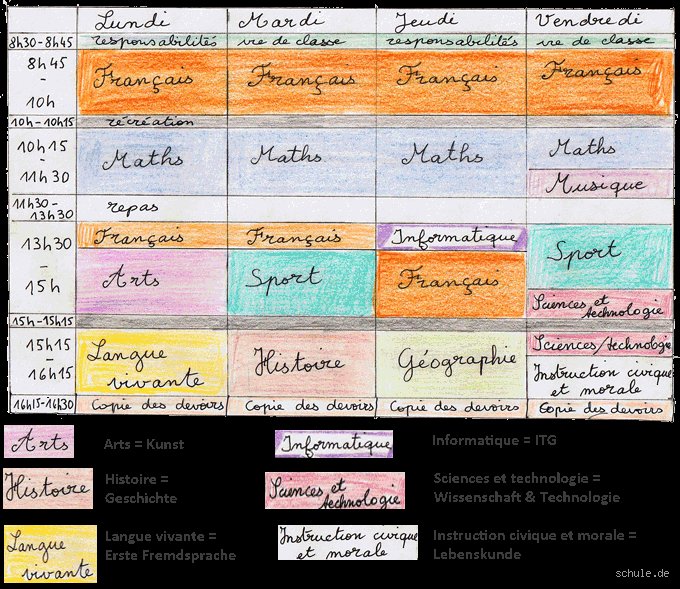 Lundi Mardi Jeudi Vendredi
8h30-8h45 responsabilités vie de classe responsabilités vie de classe
8h45 - 10h Français Français Français Français
10h-10h15 récréation
10h15 - 11h30 Maths Maths Maths Maths
Musique
11h30-13h30 repas
13h30 - 15h Français Français Informatique Sport
Arts Sport Français
Sciences et technologie
15h-15h15
15h15 - 16h15 Langue vivante Histoire Géographie Sciences/technologie
Instruction civique et morale
16h15-16h30 Copie des devoirs Copie des devoirs Copie des devoirs Copie des devoirs
Arts Arts = Kunst Informatique Informatique = ITG
Histoire Histoire = Geschichte Sciences et technologie Sciences et technologie = Wissenschaft & Technologie
Langue vivante Langue vivante = Erste Fremdsprache Instruction civique et morale Instruction civique et morale = Lebenskunde
schule.de